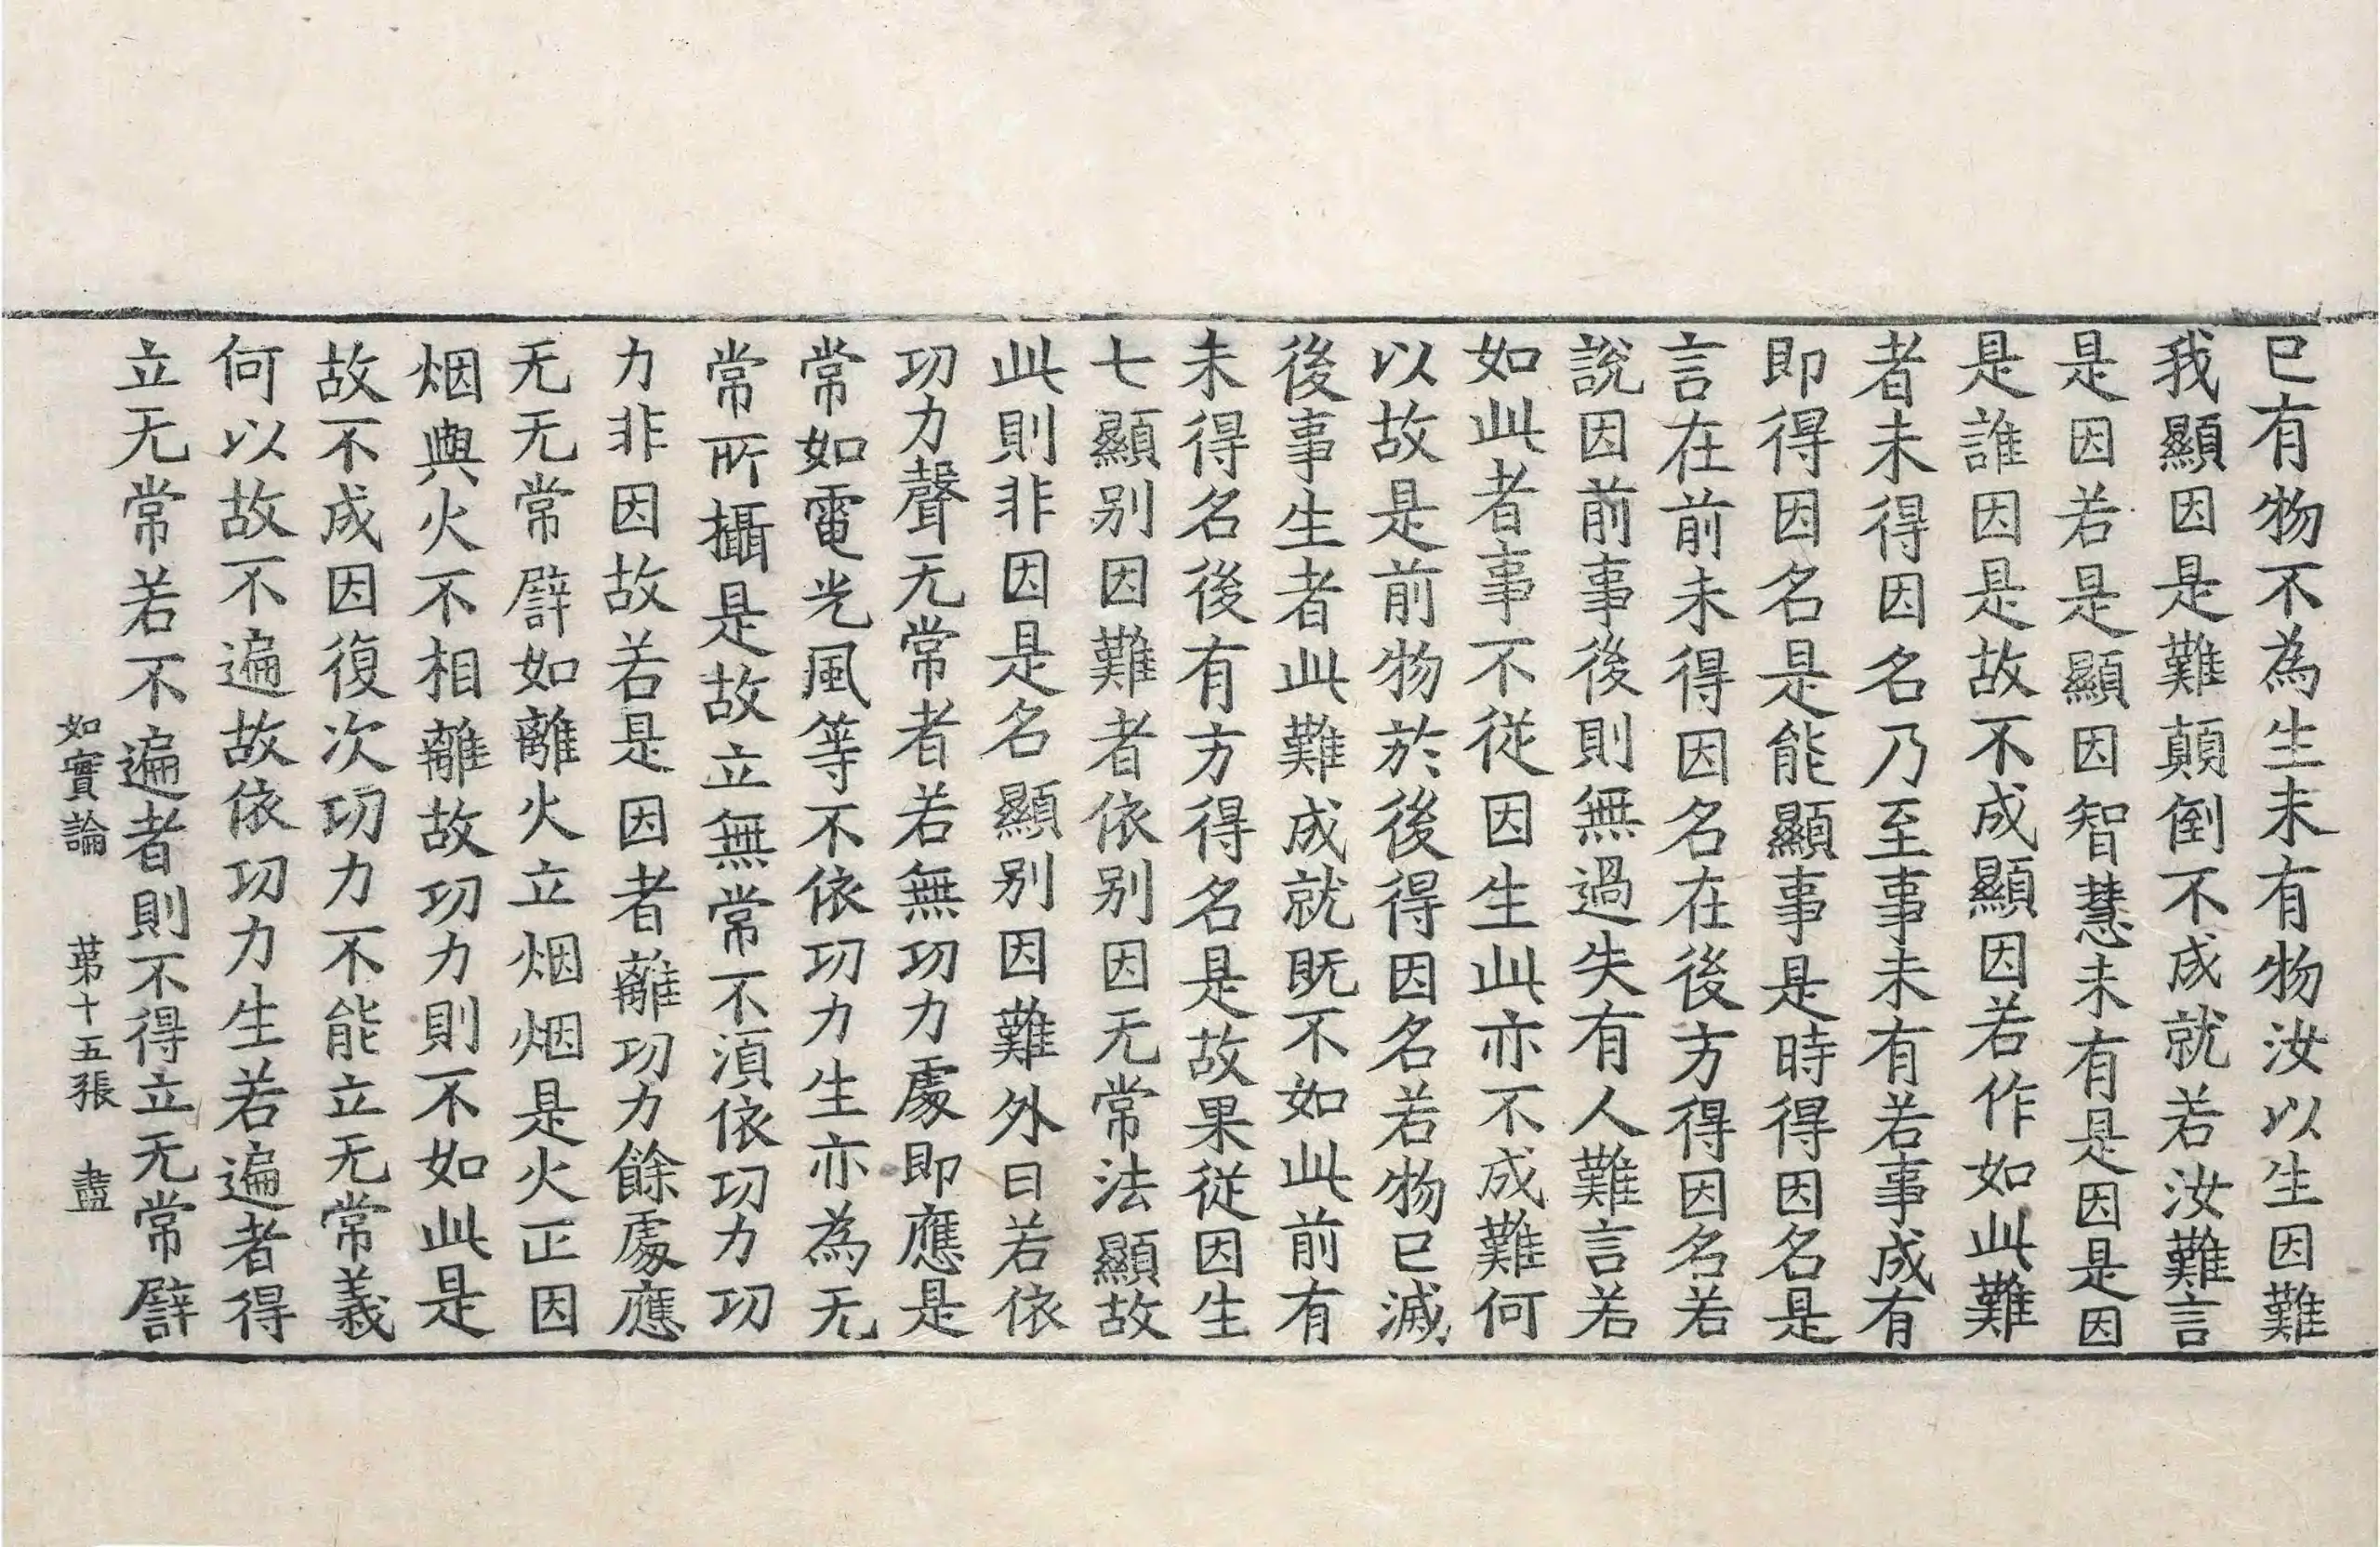 已有物不為生未有物汝以生因難
我顯因是難顛倒不成就若汝難言
是因若是顯因智慧未有是因是因
是誰因是故不成顯因若作如此難
者未得因名乃至事未有若事成有
即得因名是能顯事是時得因名是
言在前未得因名在後方得因名若
說因前事後則無過失有人難言若
如此者事不從因生此亦不成難何
以故是前物於後得因名若物已滅
後事生者此難成就既不如此前有
未得名後有方得名是故果從因生
七顯別因難者依別因无常法顯故
此則非因是名顯別因難外曰若依
功力聲无常者若無功力處即應是
常如電光風等不依功力生亦為无
常所攝是故立無常不湏依功力功
力非因故若是因者離功力餘處應
无无常譬如離火立烟烟是火正因
烟與火不相離故功力則不如此是
故不成因復次功力不能立无常義
何以故不遍故依功力生若遍者得
立无常若不遍者則不得立无常譬
如實論 苐十五張 盡